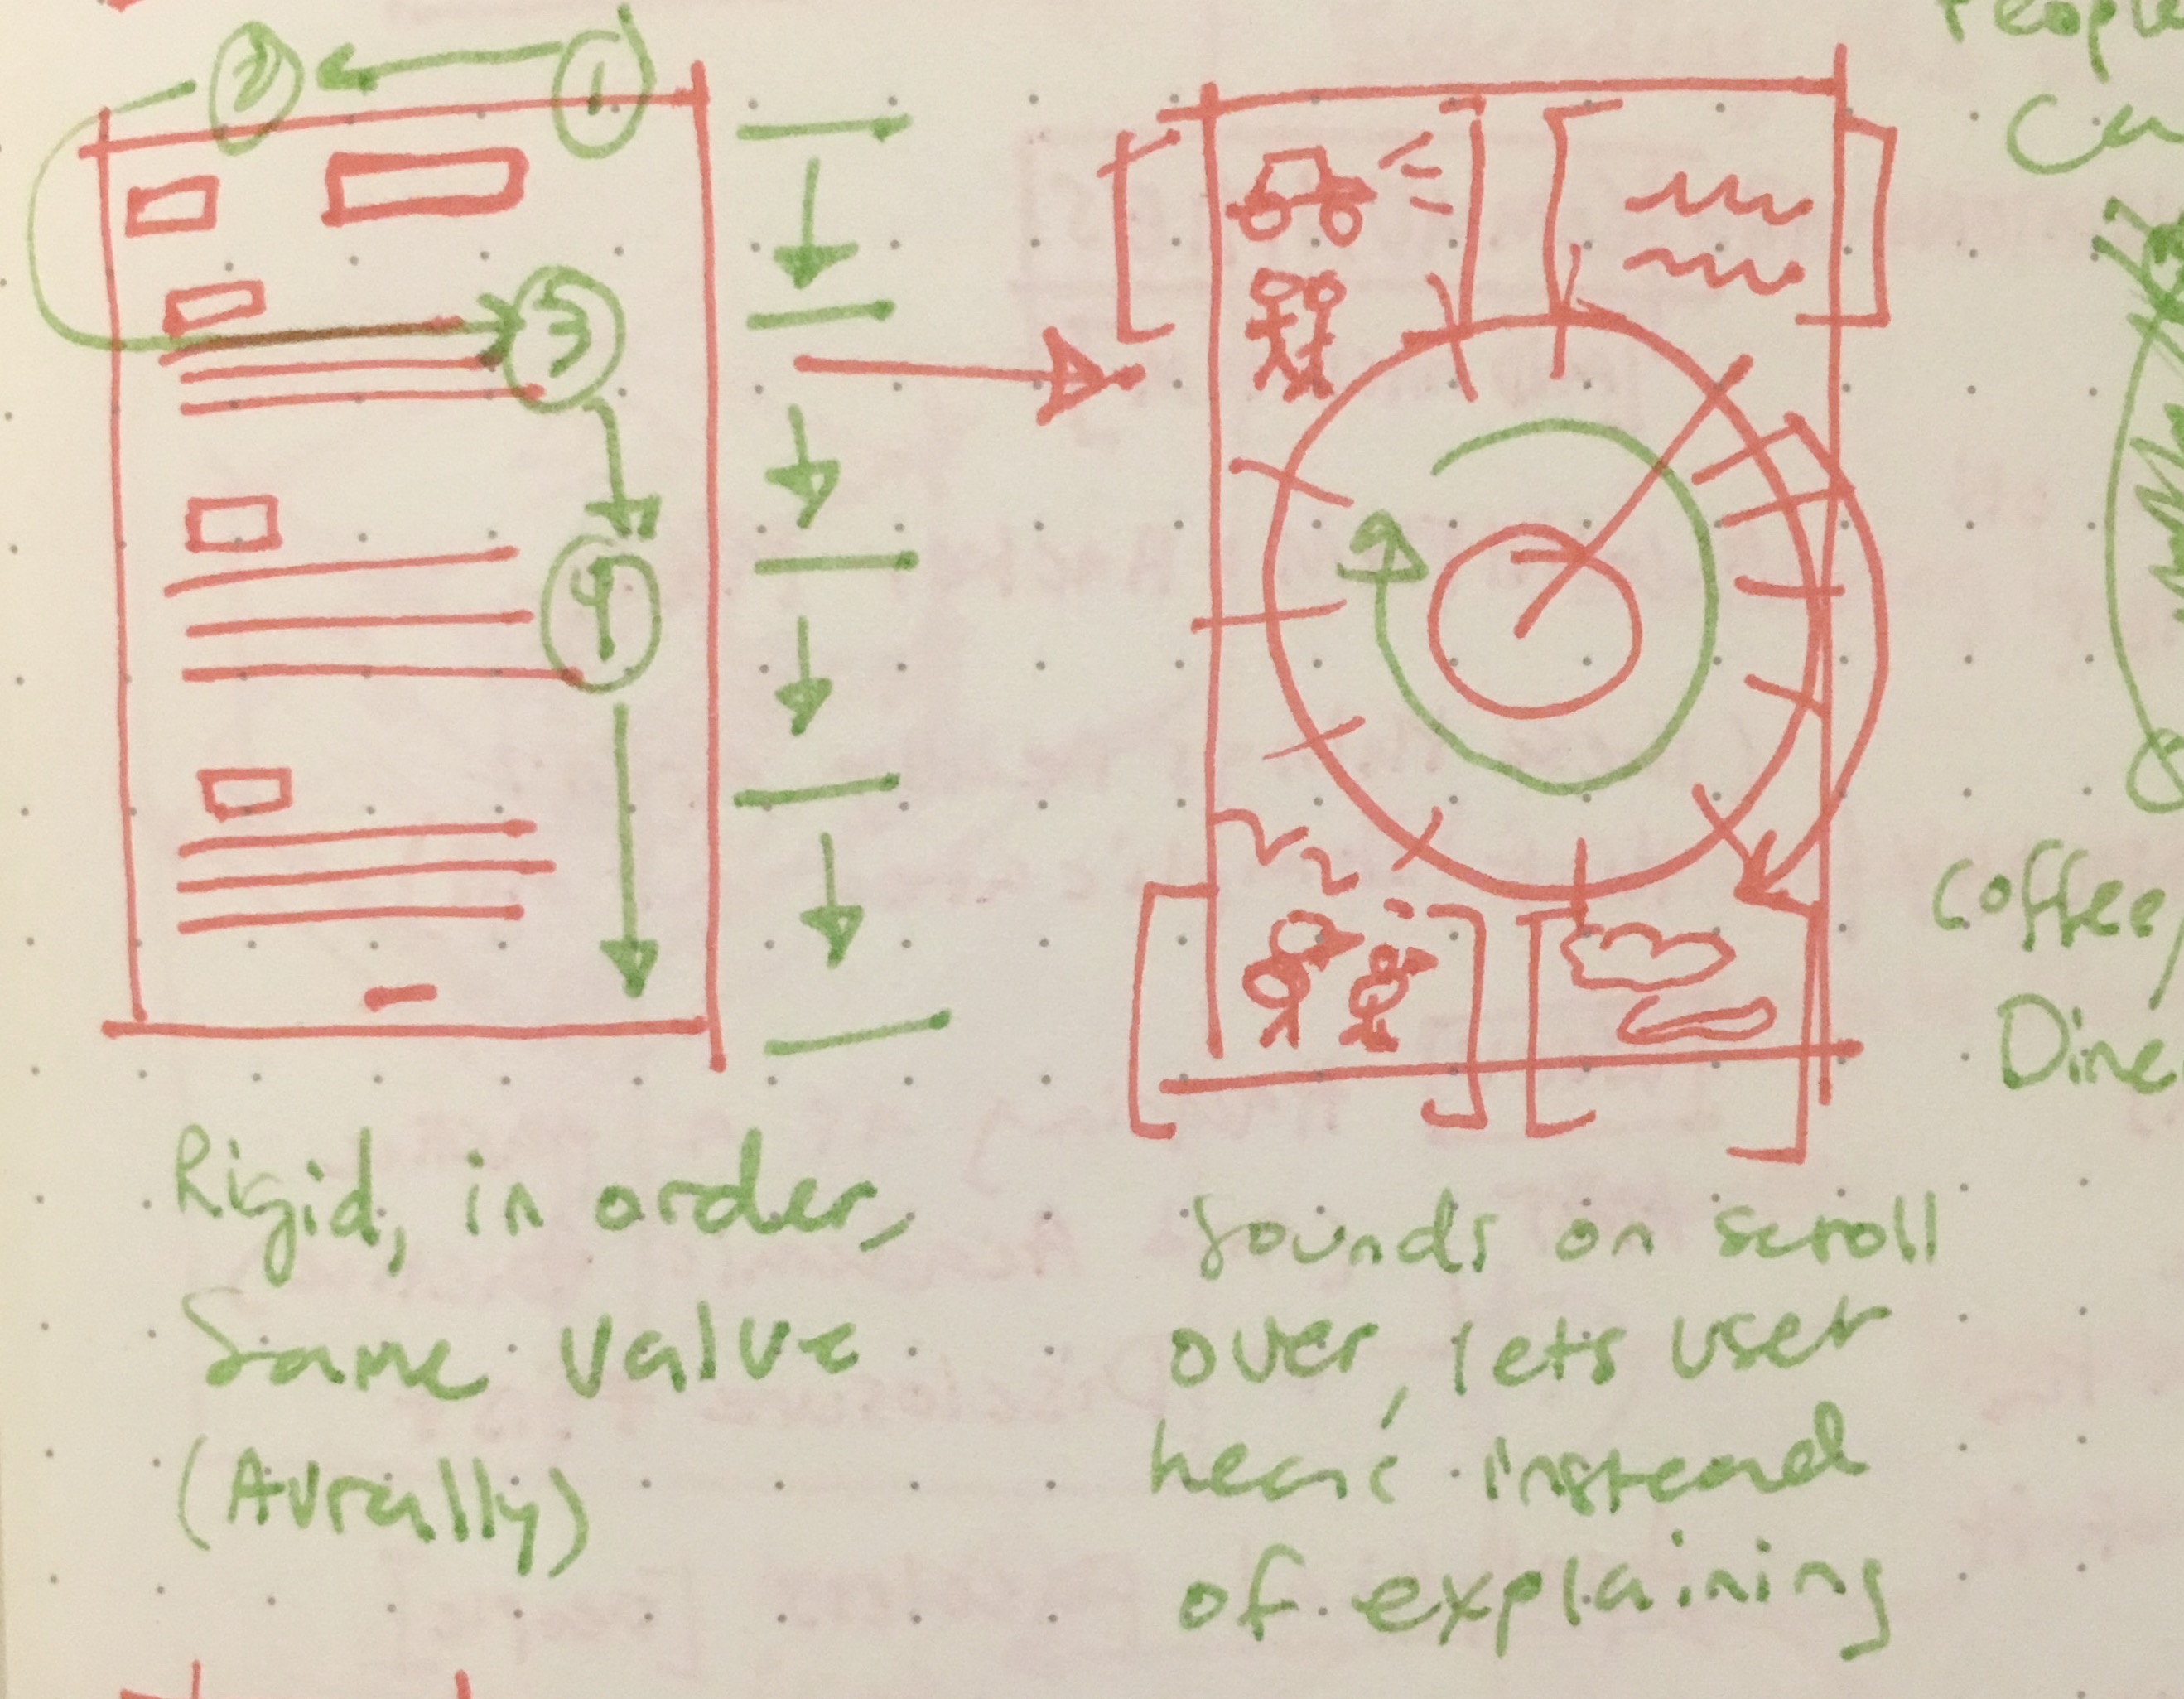 2
1
3
4
Rigid, in order,
Same value
(Aurally)
Sounds on scroll
over, lets user
hear instead
of explaining
People
Coffee/
Dine